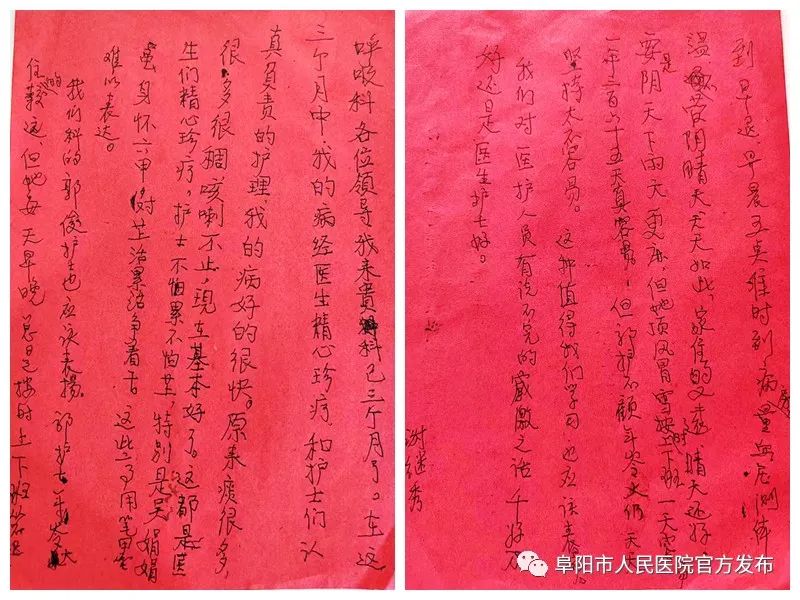 呼吸科各位領导我来貴科已三个月了。在这
三个月中、我的病经医生精心珍疗和护士们认
真負责的护理、我的病好的很快。原来痰很多,
很多很稠咳喇不止,現在基本好了。这都是医
生们精心珍疗。护士不怕累不怕苦,特别是吴娟娟
虽身怀六甲 这些 用笔墨
难以表达。
我们科的郭俊护士也应该表揚。郭护士年令大
住的较远,但她每天早晚总是按时上下班
到早退,早晨五点准时到病房量血压测体
温 阴晴天天天如此,家住的又遠,晴天还好,
要是阴天下雨天更 但她顶风冒雪按时上下班一天
一年三百六十五天真容易,但郭护不顾年令大仍天天
坚持太不容易。这种值得我们学习也应该表
我们对医护人员有说不完的感激之话千好万
好还是医生护士好。
谢继秀
阜阳市人民医院官方发布